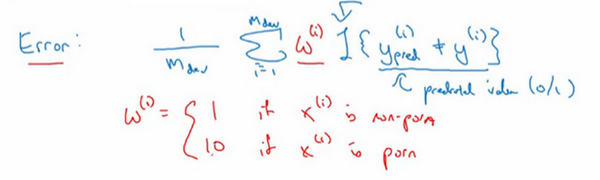 Error: 1/m_dev Σ_{i=1}^{m_dev} w^(i) 1{y_pred^(i) ≠ y^(i)}
predicted value (0/1)
w^(i) = { 1 if x^(i) is non-porn
10 if x^(i) is porn